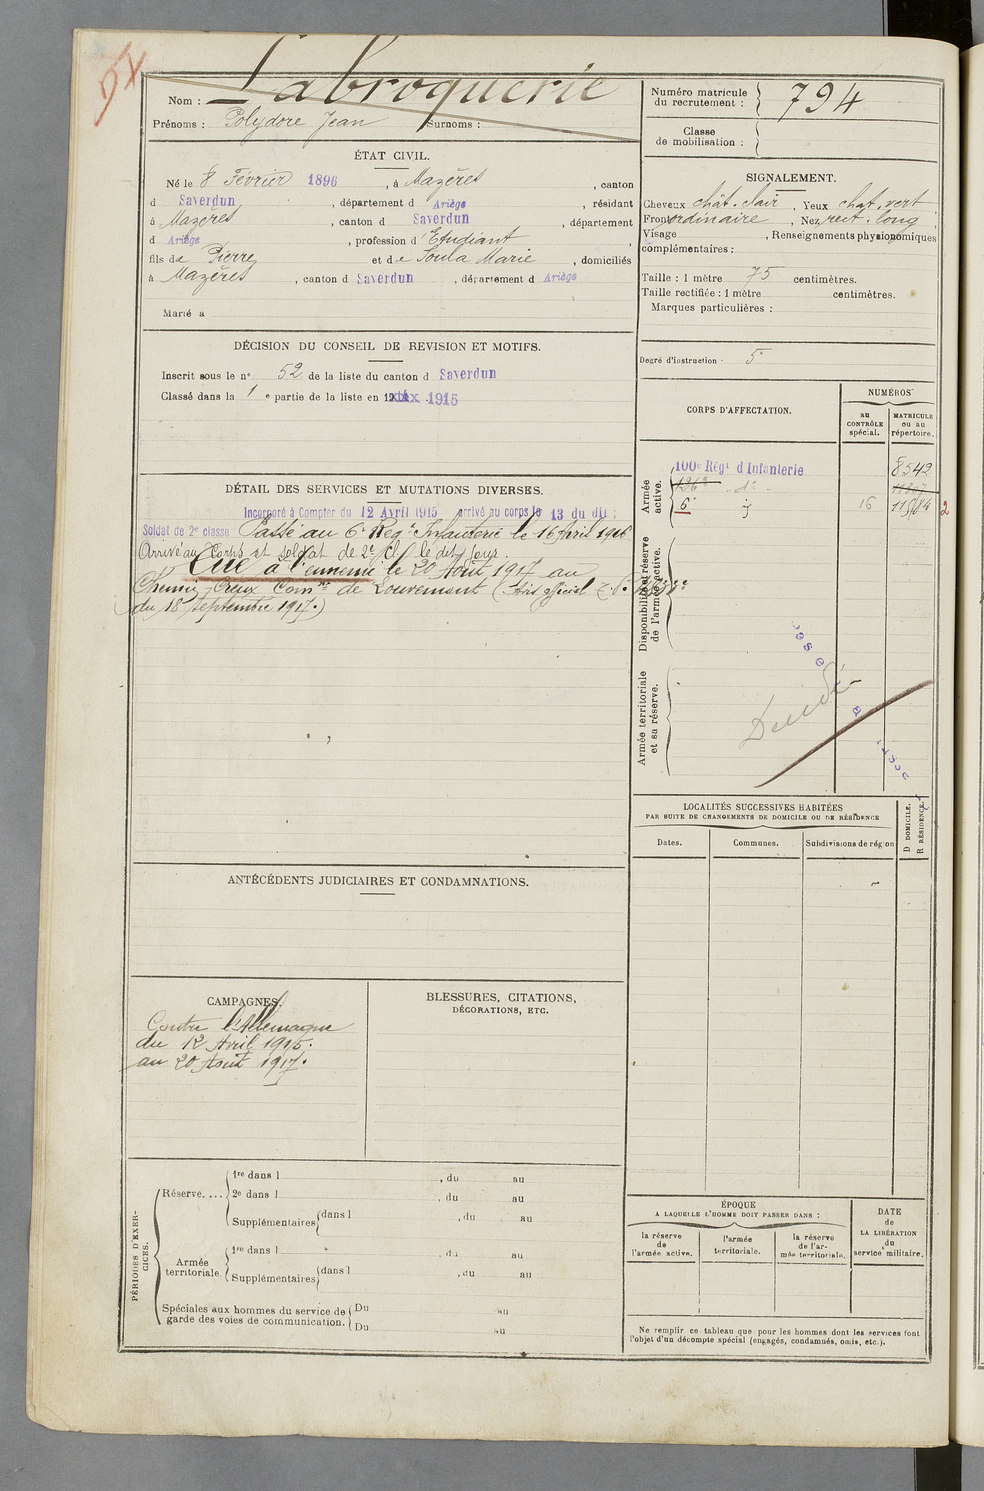 Nom : Labroquerie
Prénoms : Polydore Jean Surnoms :
Numéro matricule du recrutement : 794
Classe de mobilisation :
ÉTAT CIVIL.
Né le 8 Février 1896, à Mazères, canton
d Saverdun, département d Ariège, résidant
à Mazères, canton d Saverdun, département
d Ariège, profession d'Etudiant,
fils de Pierre et de Soula Marie, domiciliés
à Mazères, canton d Saverdun, département d Ariège
Marié à
SIGNALEMENT.
Cheveux chât. clair, Yeux chat. vert
Front ordinaire, Nez rect. long
Visage, Renseignements physionomiques
complémentaires :
Taille : 1 mètre 75 centimètres.
Taille rectifiée : 1 mètre centimètres.
Marques particulières :
Degré d'instruction : 5
DÉCISION DU CONSEIL DE REVISION ET MOTIFS.
Inscrit sous le nº 52 de la liste du canton d Saverdun
Classé dans la 1 e partie de la liste en 1915
CORPS D'AFFECTATION.
NUMÉROS
au CONTRÔLE spécial.
MATRICULE ou au répertoire.
Armée active.
100e Régt d'Infanterie 8542
126e dº 11307
6e 16
2
Disponibilité et réserve de l'armée active.
Armée territoriale et sa réserve.
Décédé
DÉTAIL DES SERVICES ET MUTATIONS DIVERSES.
Incorporé à Compter du 12 Avril 1915 arrivé au corps le 13 du dit ;
Soldat de 2e classe Passé au 6e Regt Infanterie le 16 Avril 1916
Arrivé au Corps et soldat de 2e cl. le dit jour.
Tué à l'ennemi le 20 Août 1917 au
Chemin Creux Comne de Louvemont (Avis officiel
du 18 septembre 1917.)
LOCALITÉS SUCCESSIVES HABITÉES
PAR SUITE DE CHANGEMENTS DE DOMICILE OU DE RÉSIDENCE
Dates.
Communes.
Subdivisions de région
D DOMICILE.
R RÉSIDENCE.
ANTÉCÉDENTS JUDICIAIRES ET CONDAMNATIONS.
CAMPAGNES.
Contre l'Allemagne
du 12 Avril 1915.
au 20 Août 1917.
BLESSURES, CITATIONS,
DÉCORATIONS, ETC.
PÉRIODES D'EXERCICES.
Réserve....
1re dans l , du au
2e dans l , du au
Supplémentaires dans l , du au
Armée territoriale.
1re dans l , du au
Supplémentaires dans l , du au
Spéciales aux hommes du service de garde des voies de communication.
Du au
Du au
ÉPOQUE
A LAQUELLE L'HOMME DOIT PASSER DANS :
la réserve de l'armée active.
l'armée territoriale.
la réserve de l'armée territoriale.
DATE DE LA LIBÉRATION du service militaire.
Ne remplir ce tableau que pour les hommes dont les services font
l'objet d'un décompte spécial (engagés, condamnés, omis, etc.).